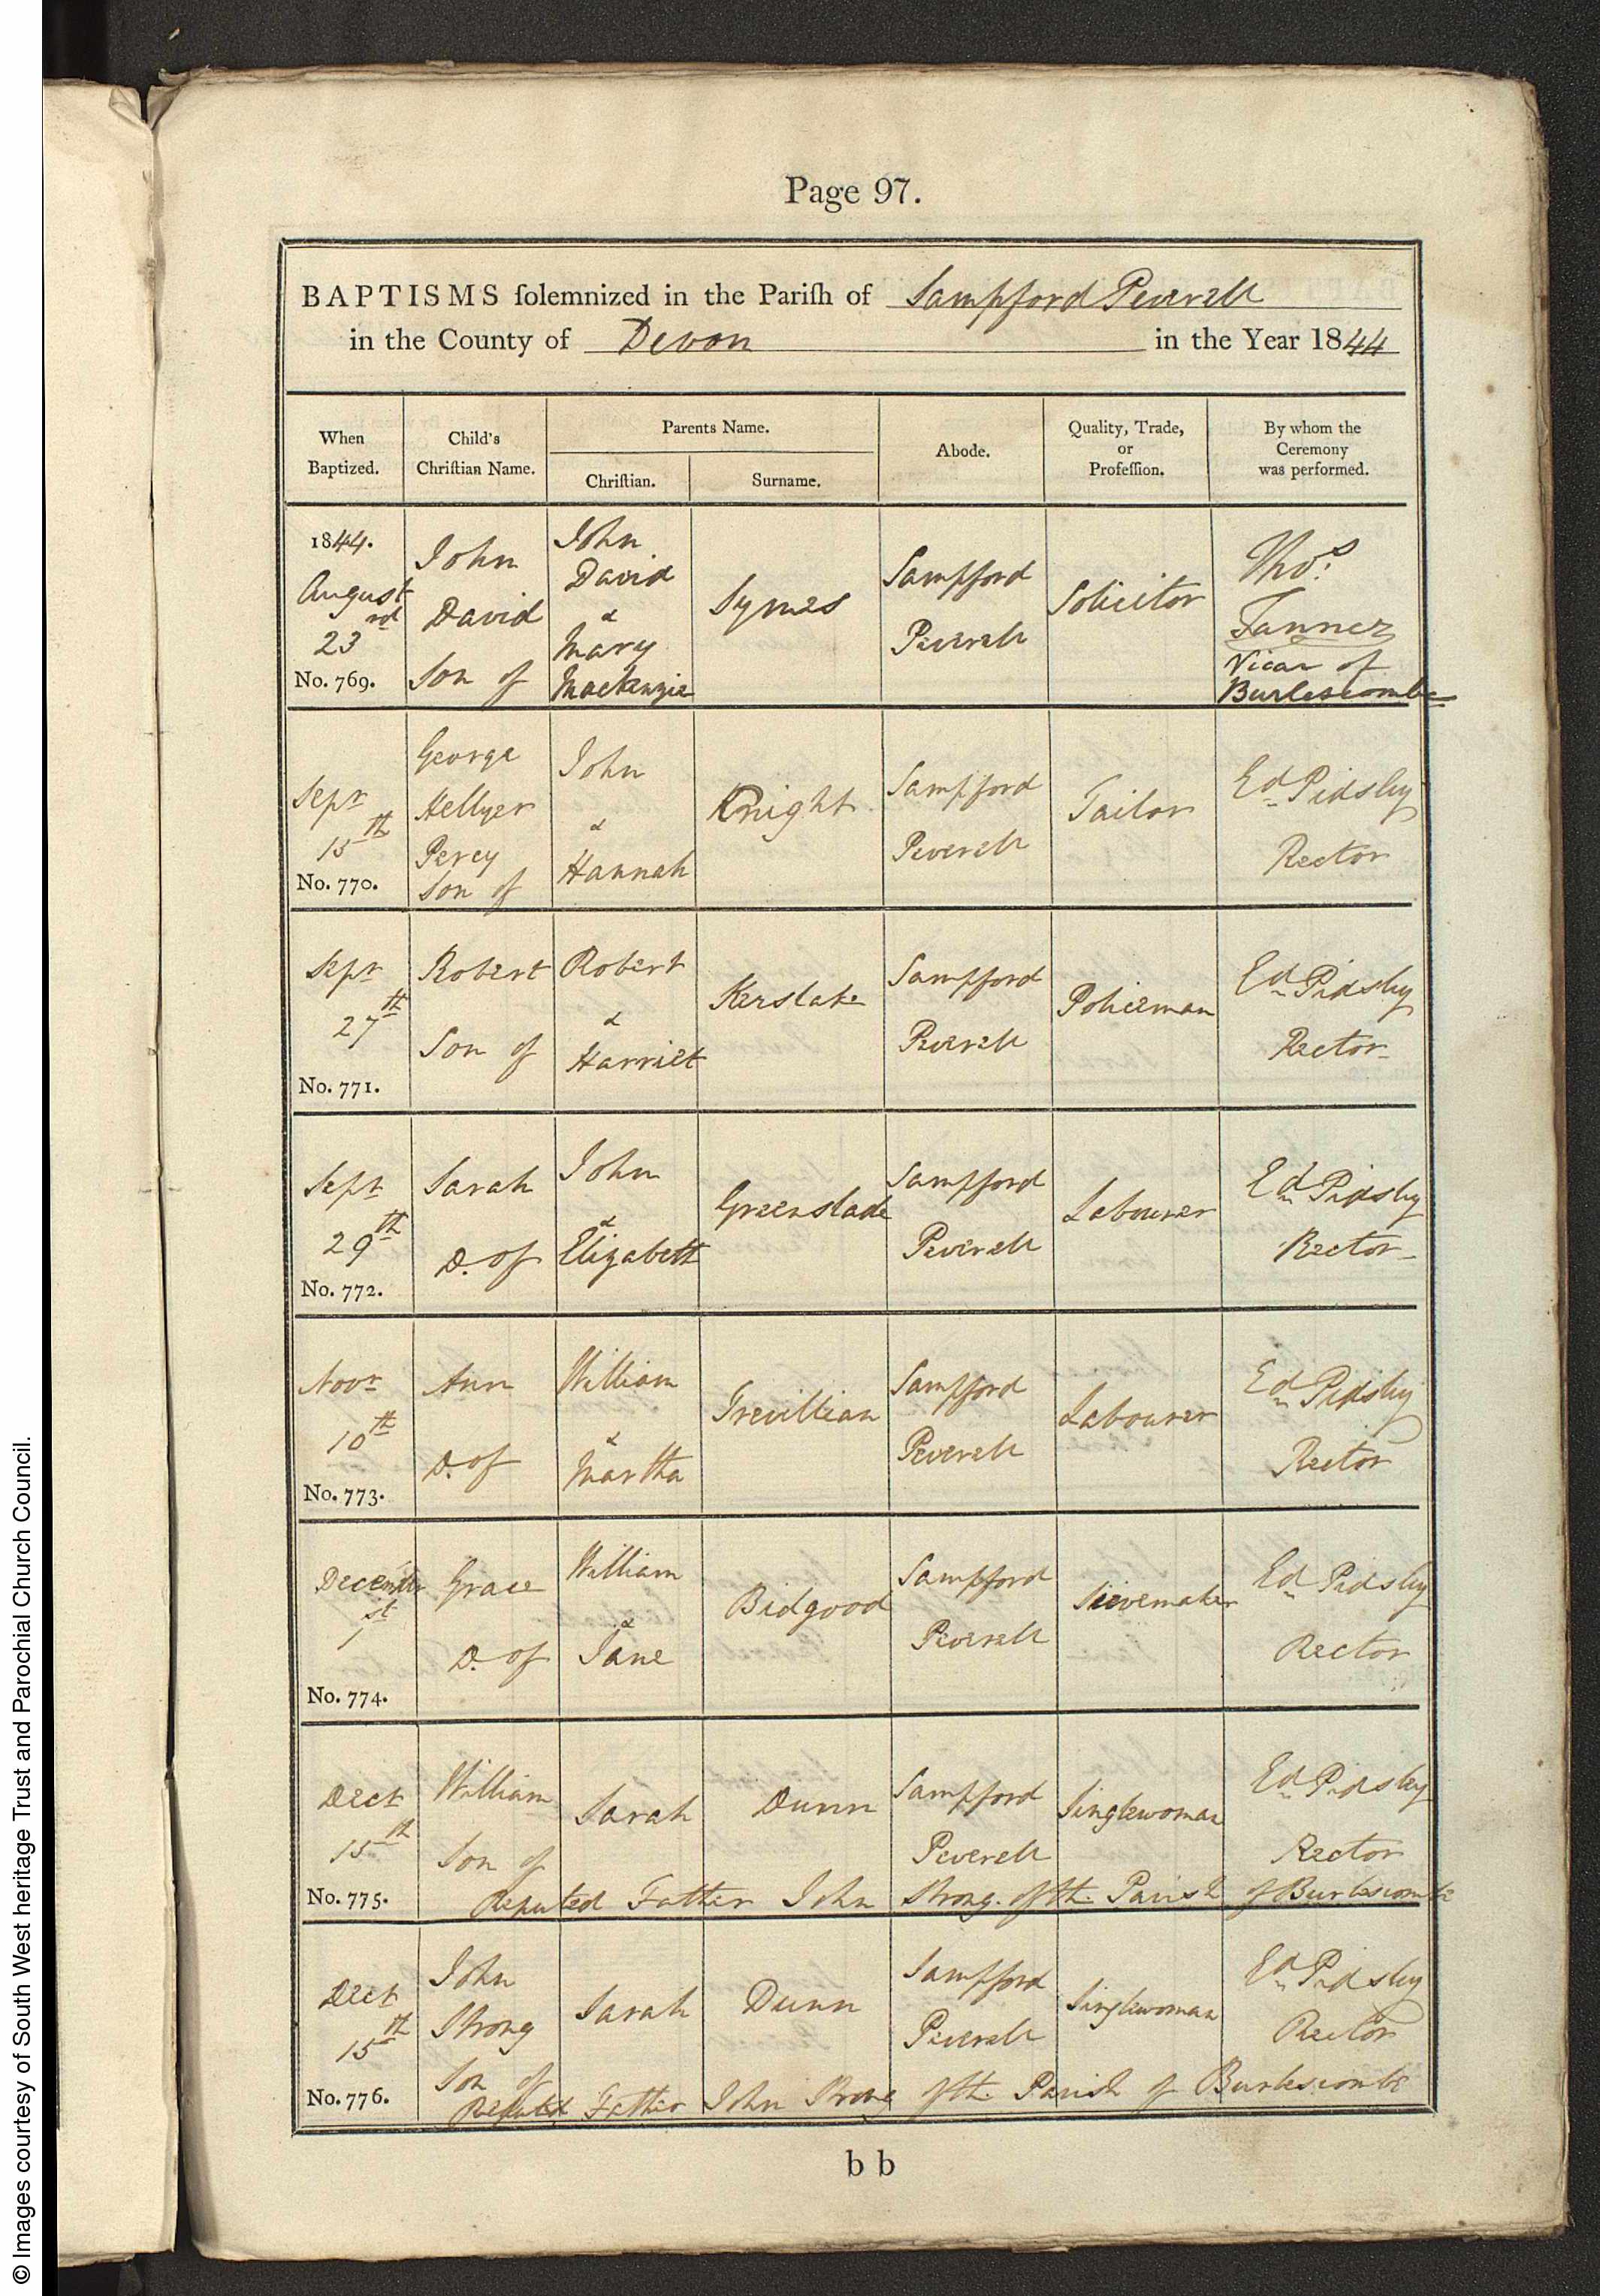 Page 97.
BAPTISMS ſolemnized in the Pariſh of Sampford Peverell
in the County of Devon in the Year 1844
When Baptized.
Child's Chriſtian Name.
Parents Name.
Chriſtian.
Surname.
Abode.
Quality, Trade, or Profeſſion.
By whom the Ceremony was performed.
1844.
August
23rd
No. 769.
John
David
Son of
John
David
&
Mary
Mackenzie
Symes
Sampford
Peverell
Solicitor
Thos.
Tanner
Vicar of
Burlescombe
Sepr
15th
No. 770.
George
Hellyer
Percy
Son of
John
&
Hannah
Knight
Sampford
Peverell
Tailor
Ed Pidsley
Rector
Sepr
27th
No. 771.
Robert
Son of
Robert
&
Harriet
Kerslake
Sampford
Peverell
Policeman
Ed Pidsley
Rector
Sepr
29th
No. 772.
Sarah
D. of
John
&
Elizabeth
Greenslade
Sampford
Peverell
Labourer
Ed Pidsley
Rector
Novr
10th
No. 773.
Ann
D. of
William
&
Martha
Trevillian
Sampford
Peverell
Labourer
Ed Pidsley
Rector
December
1st
No. 774.
Grace
D. of
William
&
Jane
Bidgood
Sampford
Peverell
Sievemaker
Ed Pidsley
Rector
Decr
15th
No. 775.
William
Son of
Sarah
Dunn
Sampford
Peverell
Singlewoman
Ed Pidsley
Rector
Reputed Father John Strong of the Parish of Burlescombe
Decr
15th
No. 776.
John
Strong
Son of
Sarah
Dunn
Sampford
Peverell
Singlewoman
Ed Pidsley
Rector
Reputed Father John Strong of the Parish of Burlescombe
b b
© Images courtesy of South West heritage Trust and Parochial Church Council.